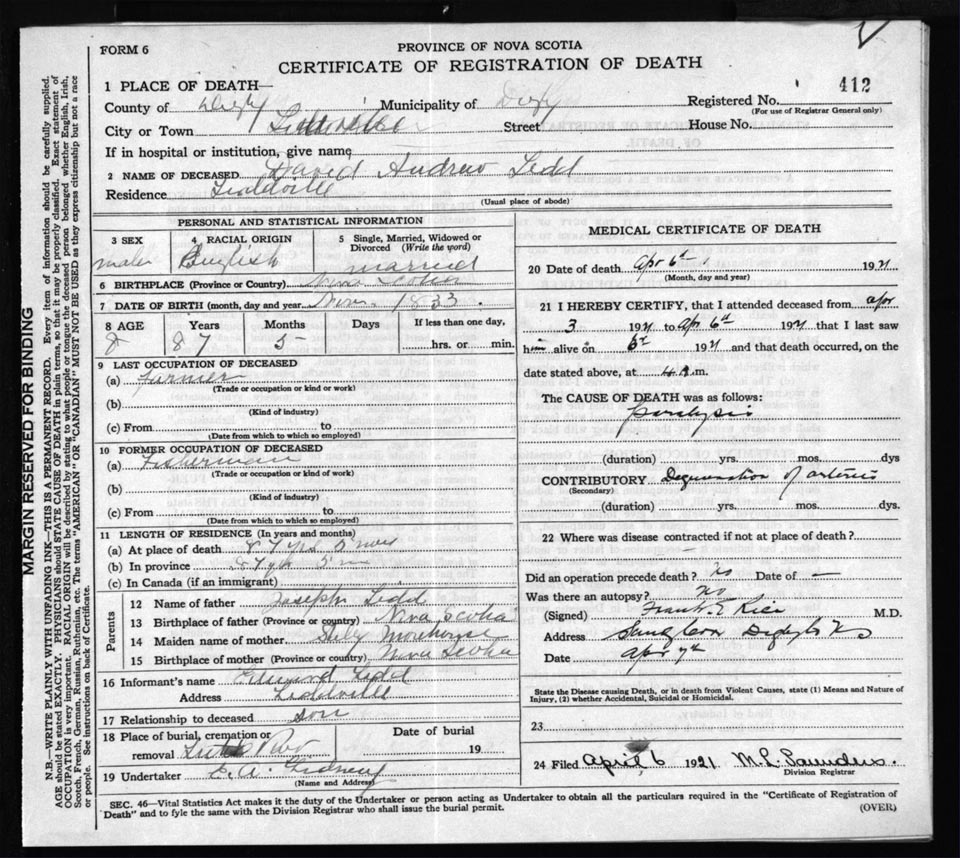 FORM 6
PROVINCE OF NOVA SCOTIA
CERTIFICATE OF REGISTRATION OF DEATH
412
1 PLACE OF DEATH—
County of Digby Municipality of Digby Registered No.
(For use of Registrar General only)
City or Town Street House No.
If in hospital or institution, give name
2 NAME OF DECEASED David Andrew Tidd
Residence Tiddville
(Usual place of abode)
PERSONAL AND STATISTICAL INFORMATION
3 SEX male
4 RACIAL ORIGIN English
5 Single, Married, Widowed or Divorced (Write the word) married
6 BIRTHPLACE (Province or Country) Nova Scotia
7 DATE OF BIRTH (month, day and year) Nov. 1833.
8 AGE Years Months Days If less than one day,
87 5 hrs. or min.
9 LAST OCCUPATION OF DECEASED
(a) Farmer
(Trade or occupation or kind or work)
(b)
(Kind of industry)
(c) From to
(Date from which to which so employed)
10 FORMER OCCUPATION OF DECEASED
(a) Fisherman
(Trade or occupation or kind of work)
(b)
(Kind of industry)
(c) From to
(Date from which to which so employed)
11 LENGTH OF RESIDENCE (In years and months)
(a) At place of death 87 yrs 5 mos
(b) In province 87 yrs 5 m
(c) In Canada (if an immigrant)
Parents
12 Name of father Joseph Tidd
13 Birthplace of father (Province or country) Nova Scotia
14 Maiden name of mother Morehouse
15 Birthplace of mother (Province or country) Nova Scotia
16 Informant's name Edward Tidd
Address Tiddville
17 Relationship to deceased son
18 Place of burial, cremation or removal Date of burial
19
19 Undertaker E. A. Gidney
(Name and Address)
MEDICAL CERTIFICATE OF DEATH
20 Date of death Apr 6th 1921
(Month, day and year)
21 I HEREBY CERTIFY, that I attended deceased from Apr
3 1921 to Apr 6th 1921 that I last saw
him alive on 1921 and that death occurred, on the
date stated above, at 4 a.m.
The CAUSE OF DEATH was as follows:
Paralysis
(duration) yrs. mos. dys
CONTRIBUTORY Degeneration of arteries
(Secondary)
(duration) yrs. mos. dys.
22 Where was disease contracted if not at place of death?
—
Did an operation precede death? No Date of —
Was there an autopsy? No
(Signed) Frank E Rice M.D.
Address Sandy Cove Digby Co NS
Date Apr 7th
State the Disease causing Death, or in death from Violent Causes, state (1) Means and Nature of
Injury, (2) whether Accidental, Suicidal or Homicidal.
23
24 Filed April 6 1921 M. L. Saunders.
Division Registrar
SEC. 46—Vital Statistics Act makes it the duty of the Undertaker or person acting as Undertaker to obtain all the particulars required in the "Certificate of Registration of
Death" and to fyle the same with the Division Registrar who shall issue the burial permit.
(OVER)
MARGIN RESERVED FOR BINDING
N.B.—WRITE PLAINLY WITH UNFADING INK—THIS IS A PERMANENT RECORD. Every item of information should be carefully supplied.
AGE should be stated EXACTLY. PHYSICIANS should STATE CAUSE OF DEATH in plain terms, so that it may be properly classified. Exact statement of
OCCUPATION is very important. RACIAL ORIGIN will be described by stating to what people or tongue the deceased person belonged whether English, Irish,
Scotch, French, German, Russian, Ruthenian, etc. The terms "AMERICAN" OR "CANADIAN" MUST NOT BE USED as they express citizenship but not a race
or people. See instructions on back of Certificate.